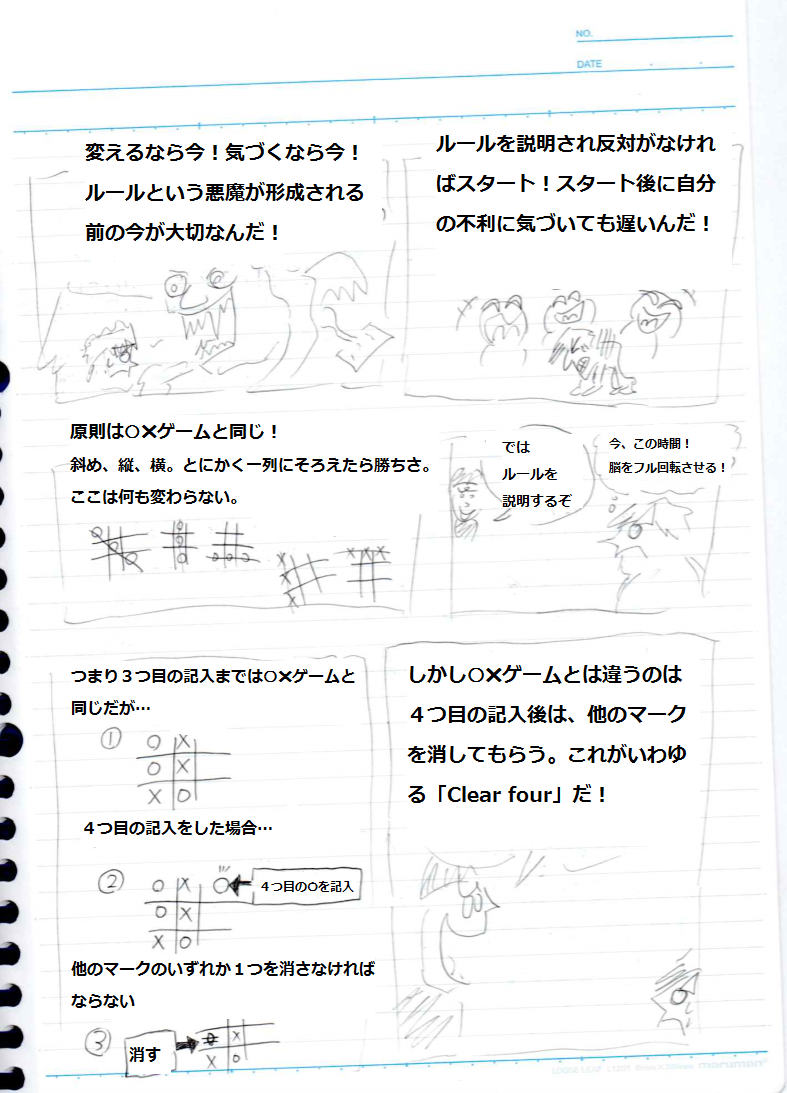 NO.
DATE
ルールを説明され反対がなけれ
ばスタート！スタート後に自分
の不利に気づいても遅いんだ！
変えるなら今！気づくなら今！
ルールという悪魔が形成される
前の今が大切なんだ！
今、この時間！
脳をフル回転させる！
では
ルールを
説明するぞ
原則は〇✕ゲームと同じ！
斜め、縦、横。とにかく一列にそろえたら勝ちさ。
ここは何も変わらない。
〇
〇
〇
〇
〇
〇
〇〇〇
×
×
×
×××
しかし〇✕ゲームとは違うのは
４つ目の記入後は、他のマーク
を消してもらう。これがいわゆ
る「Clear four」だ！
つまり３つ目の記入まではO✕ゲームと
同じだが…
①
〇 ×
〇 ×
× 〇
４つ目の記入をした場合…
②
〇 × 〇
４つ目のOを記入
〇 ×
× 〇
他のマークのいずれか１つを消さなければ
ならない
③
消す
×
× 〇
LOOSE LEAF L1201
maruman